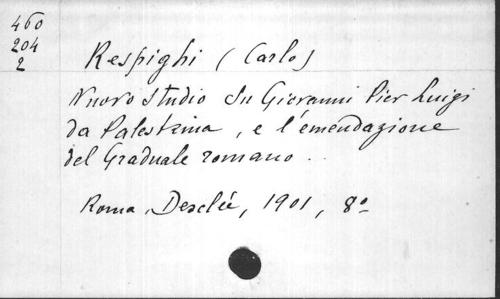 460
204
2
Respighi (Carlo)
Nuovo studio su Giovanni Pier Luigi
da Palestrina, e l'emendazione
del Graduale romano..
Roma, Desclée, 1901, 8º